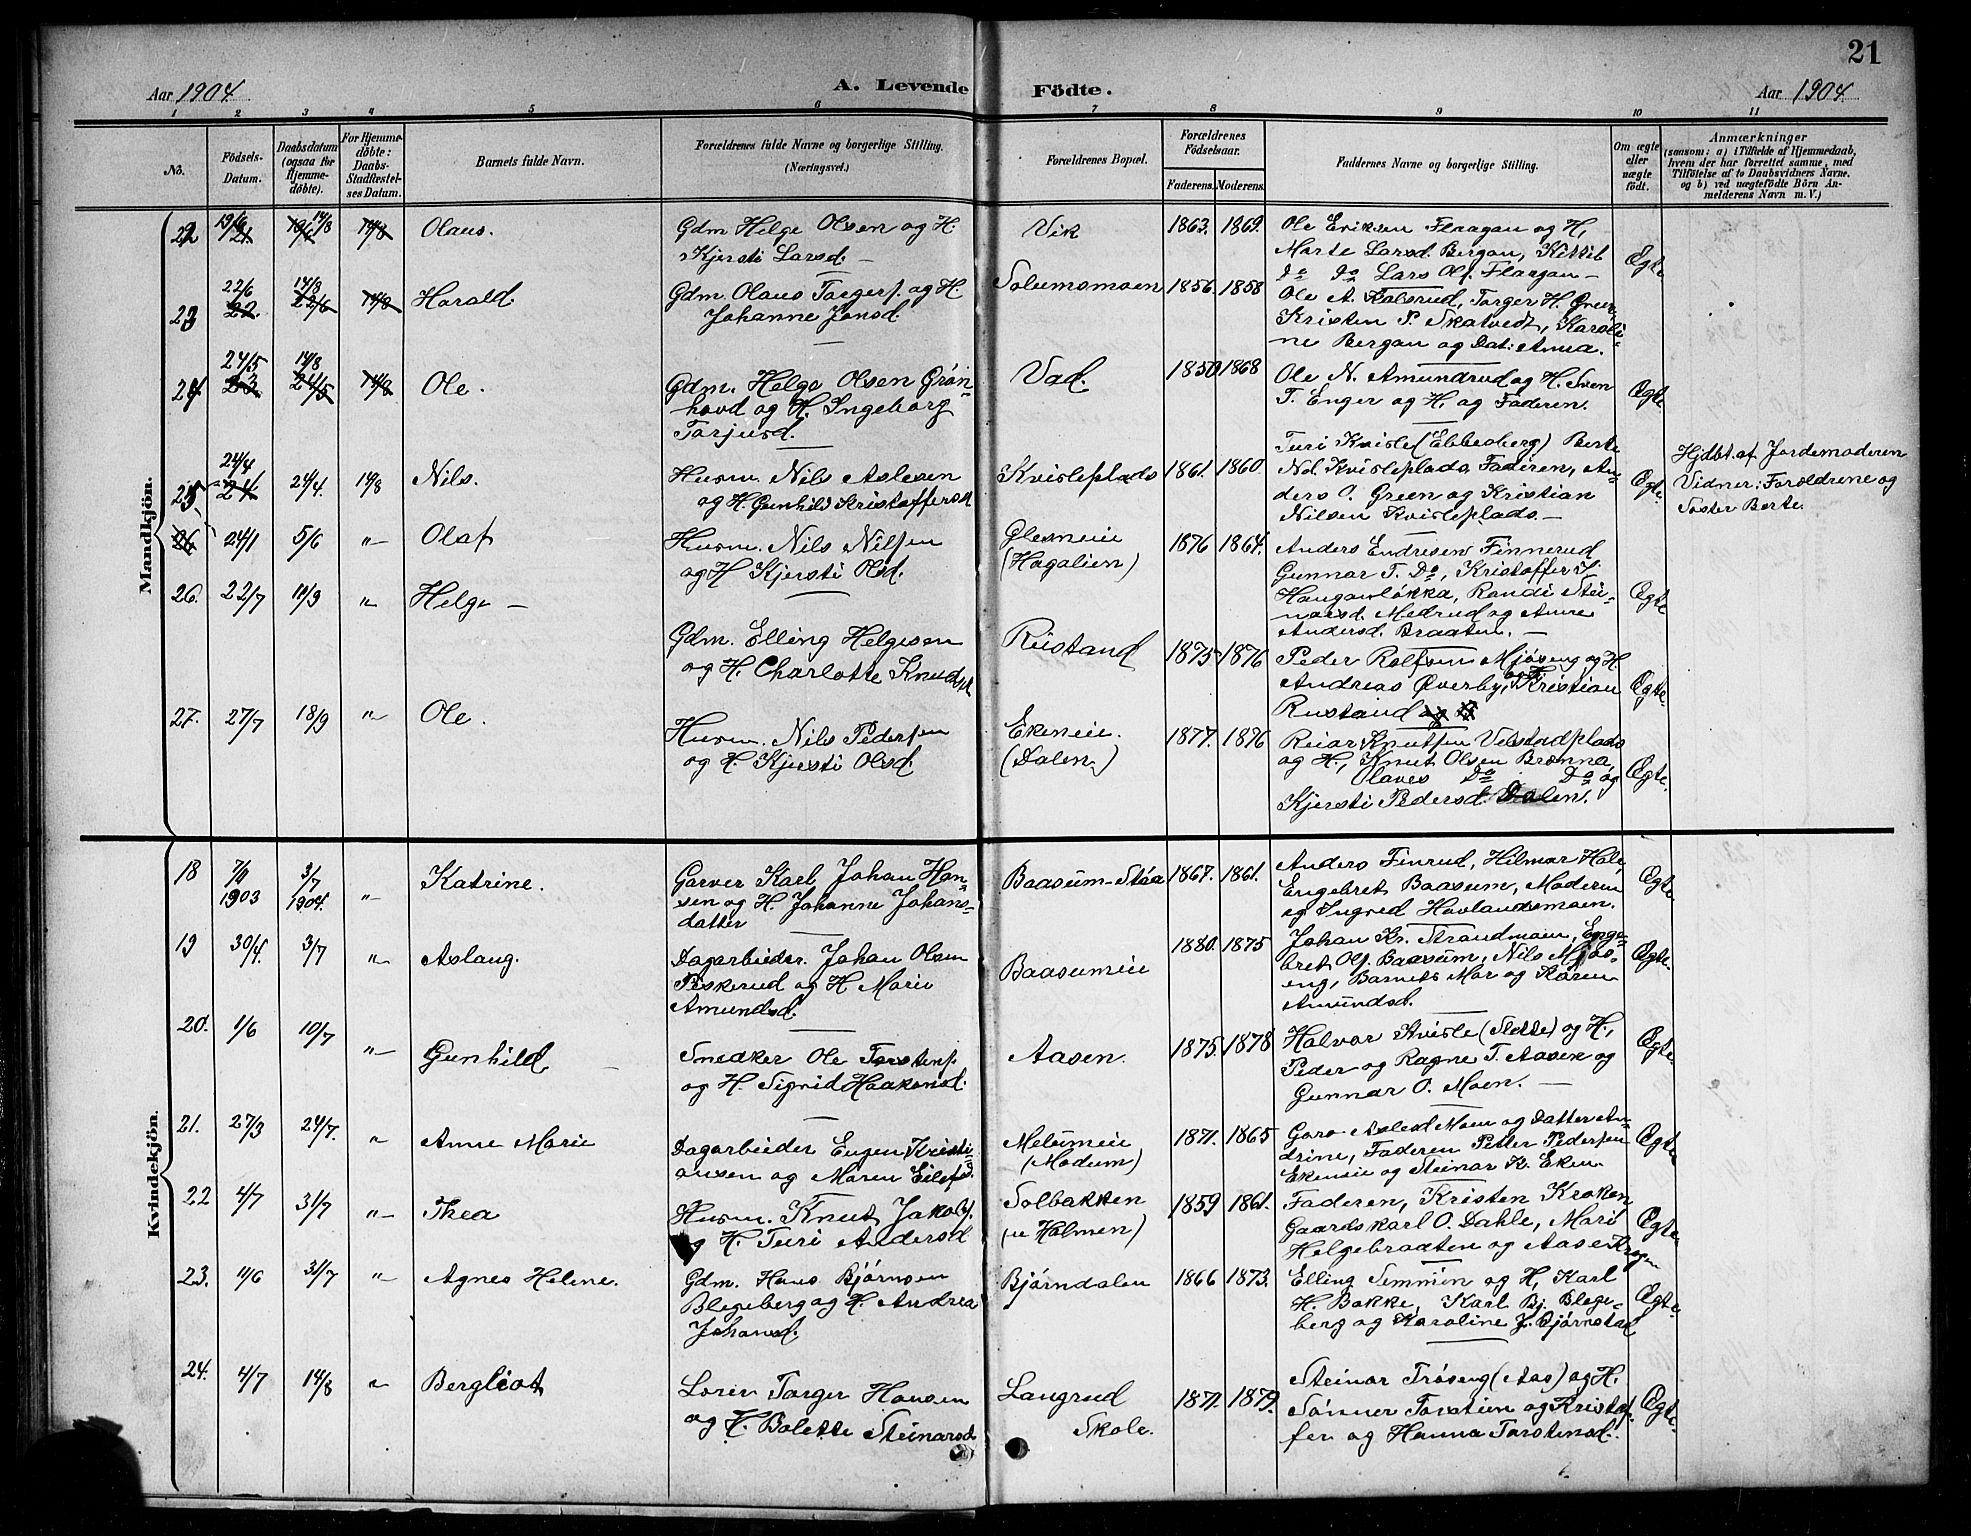 21
Aar 1904.
A. Levende Födte.
Aar 1904.
1 2 3 4 5 6 7 8 9 10 11
No.
Födsels-Datum.
Daabsdatum (ogsaa for Hjemme-döbte).
For Hjemme-döbte: Daabs-Stadfæstel-ses Datum.
Barnets fulde Navn.
Forældrenes fulde Navne og borgerlige Stilling.
(Næringsvei.)
Forældrenes Bopæl.
Forældrenes Födselsaar.
Faderens. Moderens.
Faddernes Navne og borgerlige Stilling.
Om ægte eller uægte födt.
Anmærkninger
(saasom: a) i Tilfælde af Hjemmedaab,
hvem der har forrettet samme, med
Tilföielse af to Daabsvidners Navne,
og b) ved uægtefödte Börn An-
melderens Navn m. V.)
Mandkjön.
22 19/6 14/8 Olaus.
Gdm Helge Olsen og H.
Kjersti Larsd. —
Vik 1863. 1869.
Ole Eriksen Flaagan og H,
Marte Larsd. Bergan, Kittil
Do Do Lars Ols. Flargan —
Ægte
23 22/6 14/8 Harald
Gdm. Olaus Torgers. og H.
Johanne Jonsd.
Solumsmoen 1856. 1858
Ole A. Kolsrud, Torger H. Green,
Kristen P. Skatvedt, Karoli-
ne Bergan og Dat: Anna.
24 24/5 14/8 Ole.
Gdm. Helge Olsen Grøn-
hovd og H. Ingeborg
Tarjusd.
Vad. 1850 1868
Ole N. Amundrud og H. Sven
T. Enger og H. og Faderen.
Ægte
25 24/4 24/4. 14/8 Nils.
Husm. Nils Aslesen
og H. Gunhild Kristoffersd
Kvisleplads 1861. 1860
Turi Kvisle (Ebbesberg) Berte
Nd. Kvisleplads, Faderen, An-
ders O. Green og Kristian
Nilsen Kvisleplads. —
Ægte.
Hjdbt. af Jordemoderen
Vidner: Forældrene og
Søster Berte.
24/1 5/6 " Olaf
Husm. Nils Nilsen
og H Kjersti Olsd.
Glesneie
(Hagalien)
1876 1864.
Anders Endresen Finnerud
Gunnar T. Do, Kristoffer K.
Hauganløkka, Randi Stei-
narsd. Medrud og Anne
Andersd. Braaten. —
Ægte
26. 22/7 11/9 " Helge —
Gdm. Elling Helgesen
og H. Charlotte Knudsd
Rustand 1875 1876
Peder Rolfsen Mjøseng og H.
Andreas Øverby, Kristian
Rustand
Ægte.
27. 27/7 18/9 " Ole.
Husm. Nils Pedersen
og H. Kjersti Olsd.
Ekeneie.
(Dalen)
1877. 1876
Reiar Knutsen Velstadplads
og H, Knut Olsen Brenna,
Olaves Do Do og
Kjersti Pedersd. Dalen.
Ægte.
Kvindekjön.
18 1903 3/7 1904. " Katrine.
Garver Karl Johan Han-
sen og H. Johanne Johans-
datter
Baasum-Stoa 1867. 1861.
Anders Finrud, Hilmar Hole,
Engebret Baasum, Moderen
og Ingrid Havlandsmoen.
Ægte
19 30/4. 3/7 " Aslaug.
Dagarbeider. Johan Olsen
Piskerud og H Marie
Amundsd.
Baasumeie 1880. 1875
Johan Kr. Strandmoen, Enge-
bret Ols. Baasum, Nils Mjøs-
eng, Barnets Mor og Karen
Amundsd.
Ægte.
20. 1/6 10/7 " Gunhild
Snedker Ole Torstens.
og H. Sigrid Haakonsd.
Aasen. 1875. 1878
Halvor Kvisle (Slette) og H,
Peder og Ragne T. Aasen og
Gunnar O. Moen. —
Ægte.
21. 27/3 24/7. " Anne Marie
Dagarbeider Eugen Kristi-
ansen og Maren Eilefsd.
Melumeie
(Modum)
1871. 1865
Goro Aslesd Moen og Datter An-
drine, Faderen Petter Pedersen
Ekeneie og Steinar K. Eken.
Ægte
22 4/7 31/7 " Thea
Husm. Knut Jakobs.
og H. Turi Andersd
Solbakken
(u Holmen)
1859 1861.
Faderen, Kristen Kroken
Gaardskarl O. Dahle, Mari
Helgebraaten og Aase Krogen
Ægte
23. 11/6 31/7 " Agnes Helene.
Gdm. Hans Bjørnsen
Blegeberg og H. Andrea
Johansd.
Bjørndalen 1866 1873.
Elling Semmen og H, Karl
H. Bakke, Karl Bj. Blege-
berg og Karoline J. Bjørnstad
Ægte.
24. 4/7 14/8 " Bergliot
Lærer Torger Hansen
og H. Bolette Steinarsd
Langrud
Skole.
1871. 1879.
Steinar Trøseng (Aas) og H.
Sønner Torstein og Kristof-
fer og Hanna Torstensd.
Ægte.